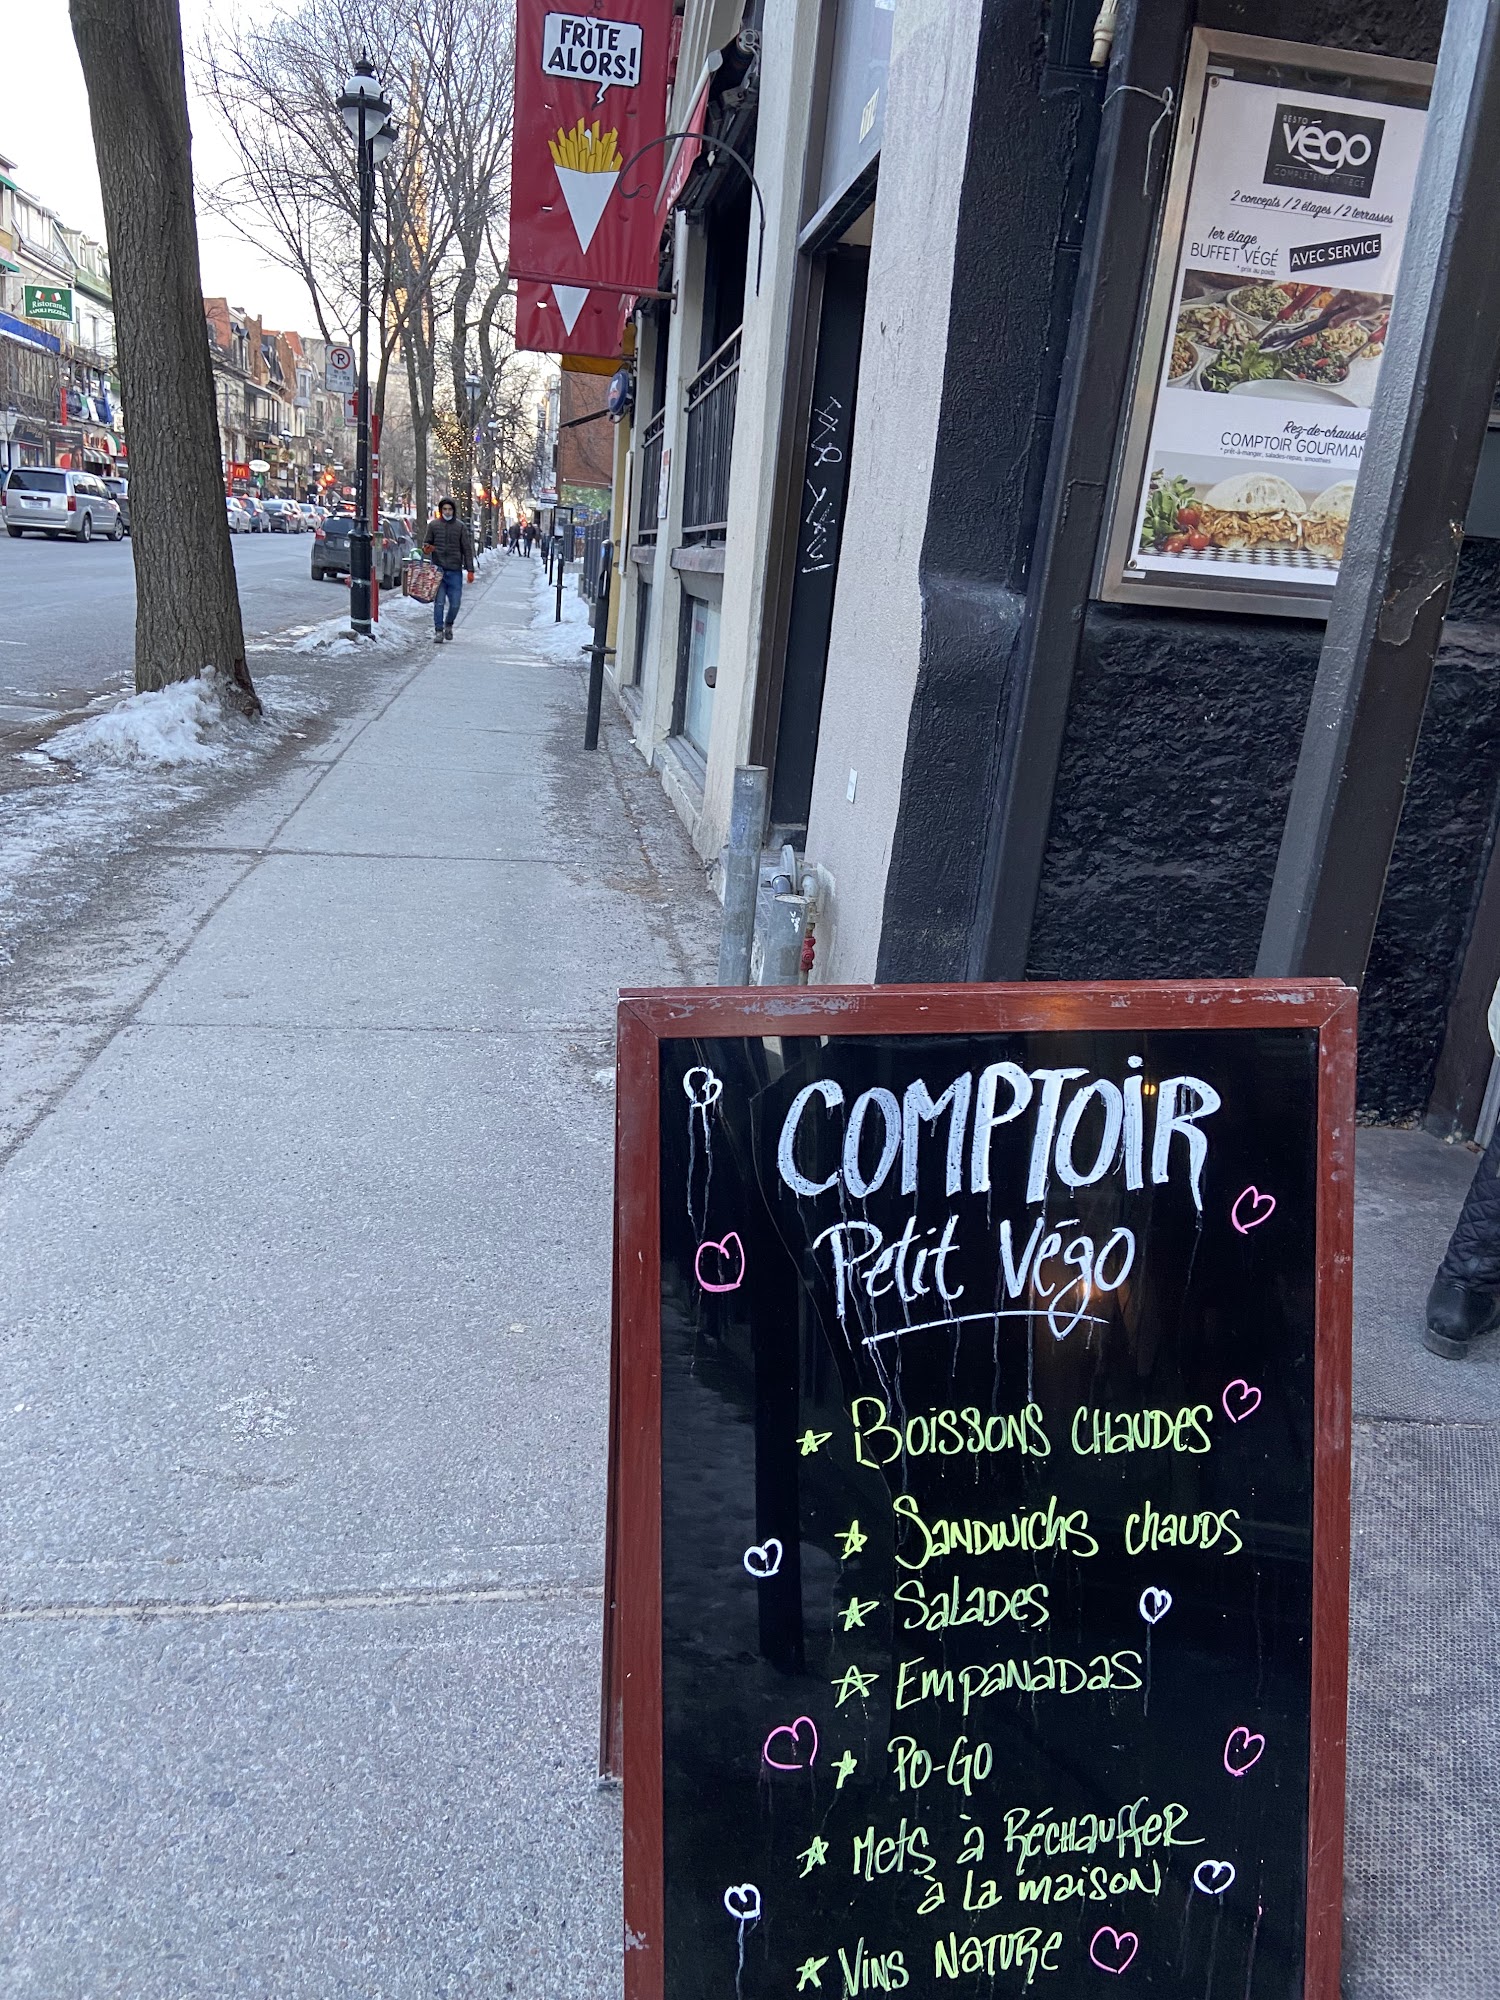 FRÌTE
ALORS!
Ristorante
NAPOLI PIZZERIA
RESTO
végo
COMPLÈTEMENT VÉGÉ
2 concepts / 2 étages / 2 terrasses
1er étage
BUFFET VÉGÉ
* prix au poids
AVEC SERVICE
Rez-de-chaussé
COMPTOIR GOURMAN
* prêt-à-manger, salades-repas, smoothies
COMPTOIR
Petit Végo
BOISSONS CHAUDES
SANDWICHS CHAUDS
SALADES
EMPANADAS
PO-GO
METS à RÉCHAUFFER
à LA MAISON
VINS NATURE